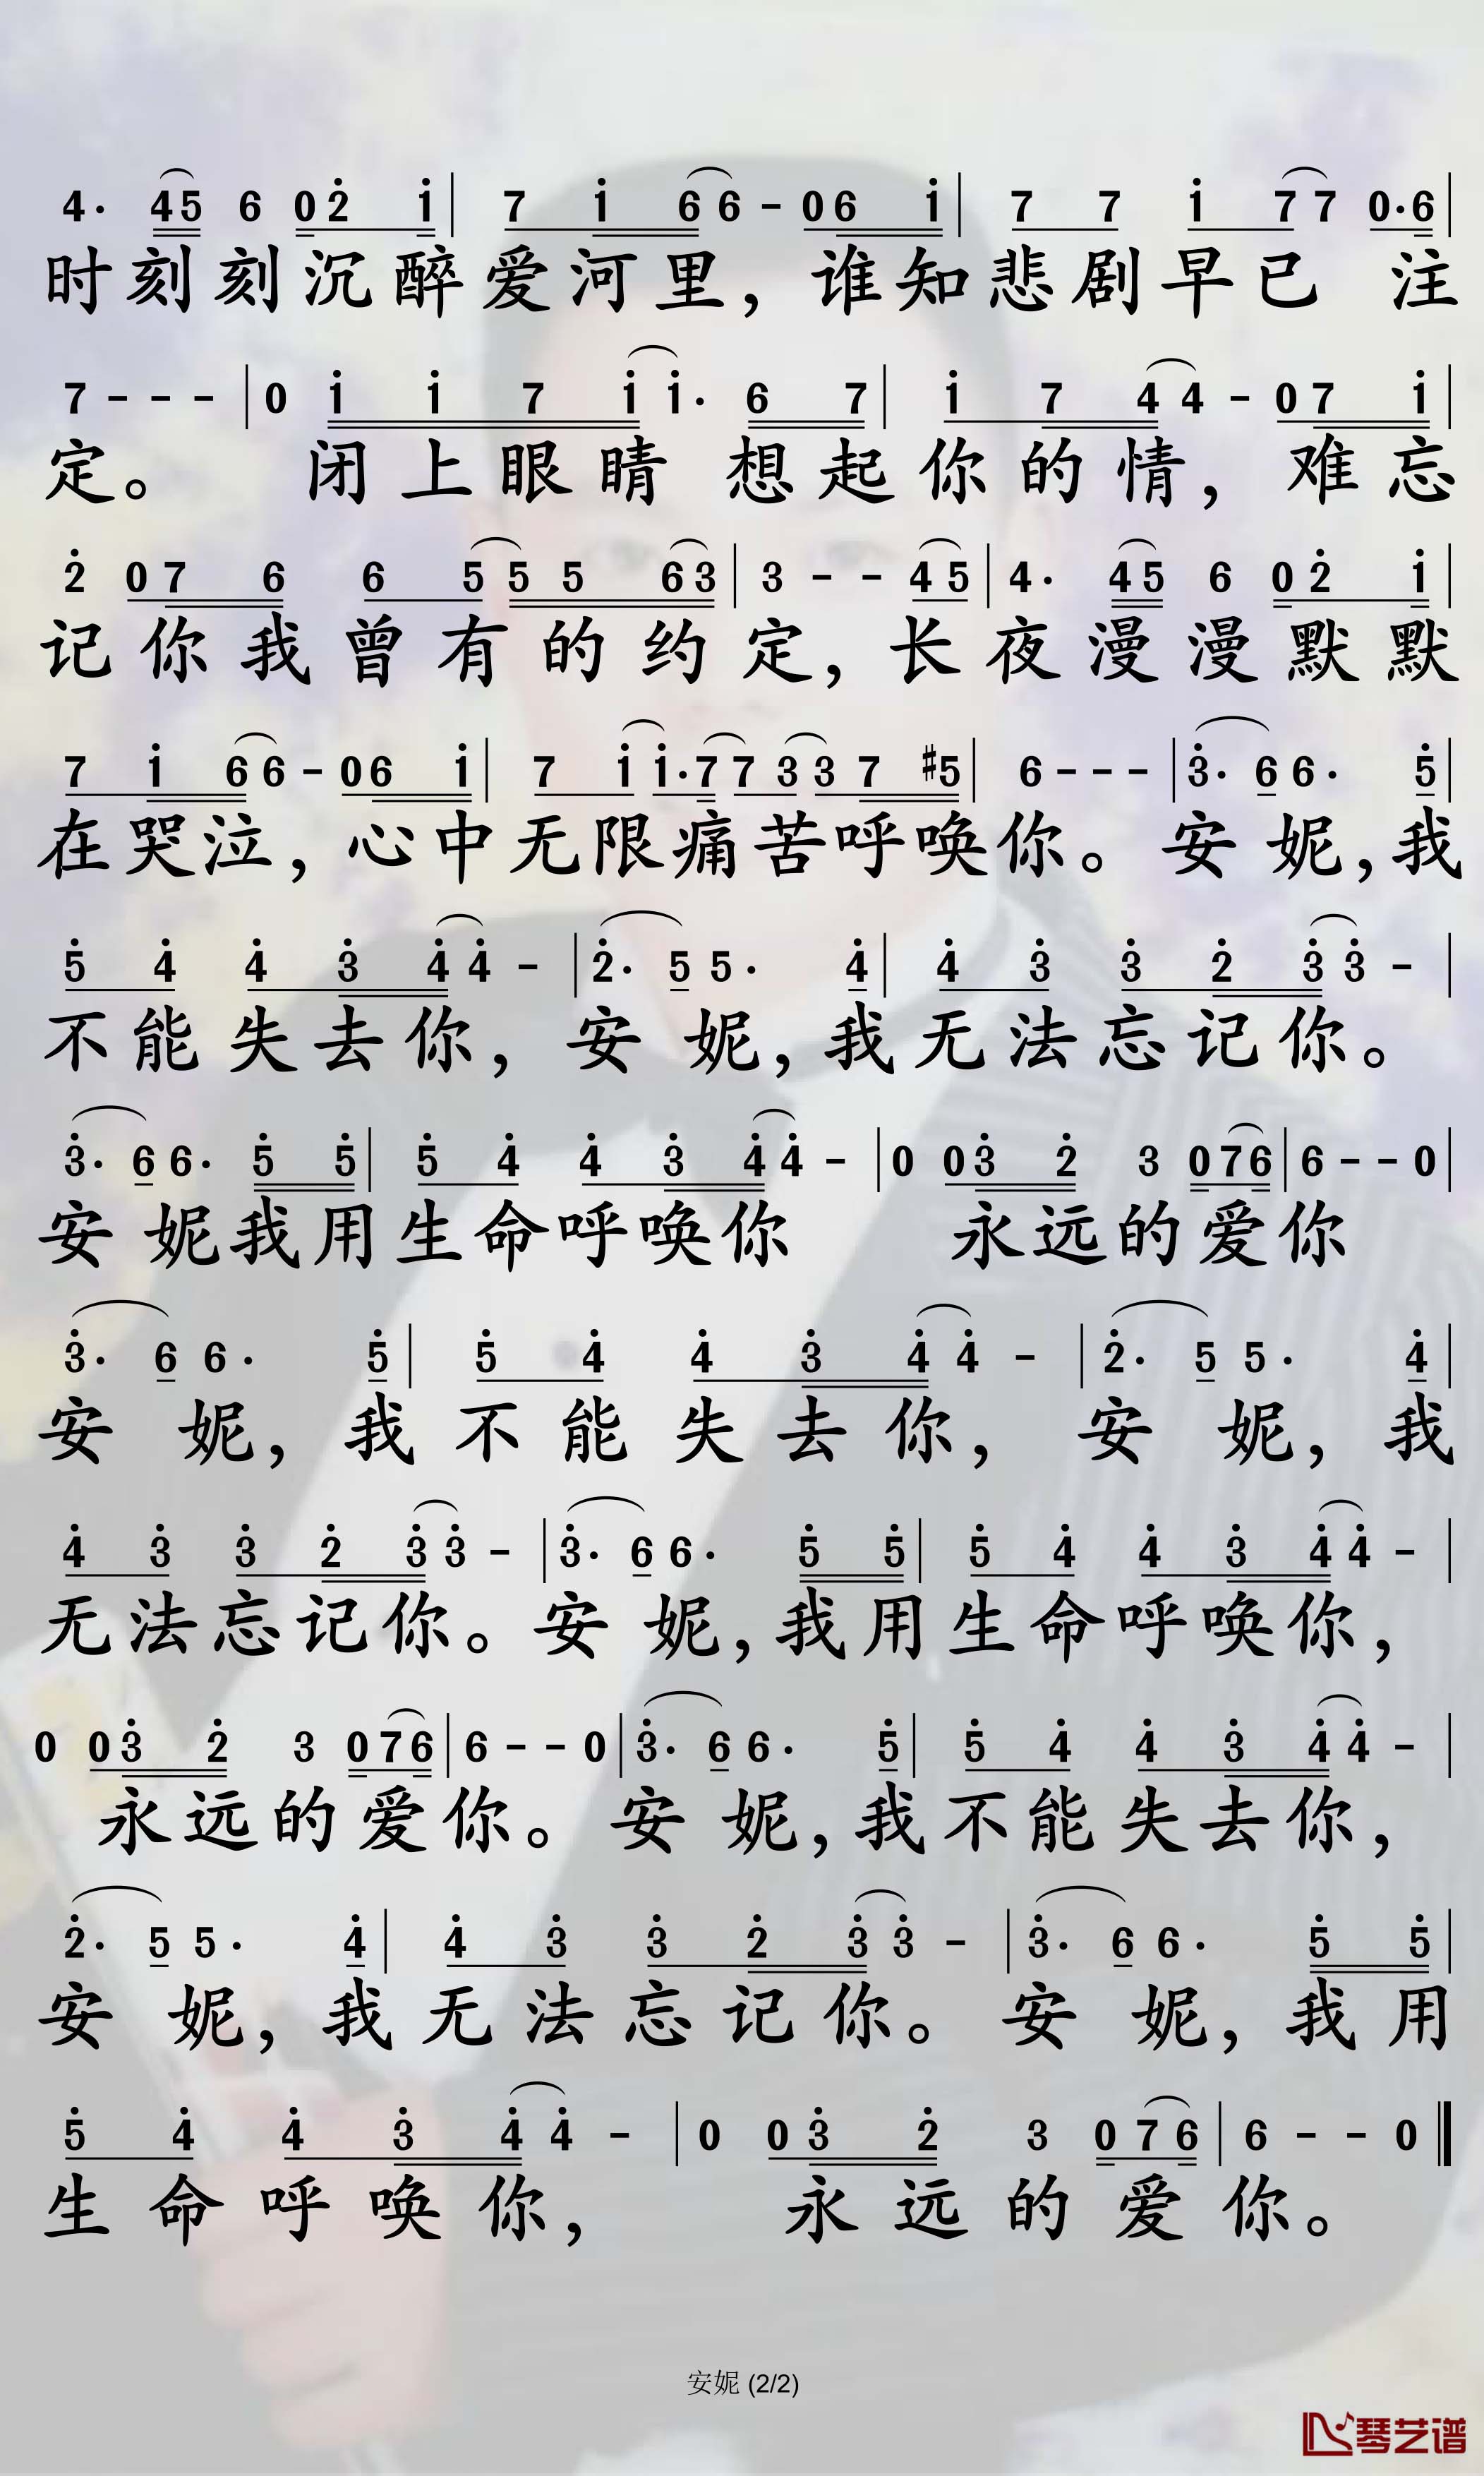 4· 45 6 02̇ 1̇ | 7 1̇ 66 - 06 1̇ | 7 7 1̇ 77 0·6 |
时刻刻沉醉爱河里，谁知悲剧早已 注
7 - - - | 0 1̇ 1̇ 7 1̇1̇· 6 7 | 1̇ 7 44 - 07 1̇ |
定。 闭上眼睛 想起你的情，难忘
2̇ 07 6 6 55 5 63 | 3 - - 45 | 4· 45 6 02̇ 1̇ |
记你我曾有的约定，长夜漫漫默默
7 1̇ 66 - 06 1̇ | 7 1̇1̇·77 33 7 #5 | 6 - - - | 3̇· 66· 5̇ |
在哭泣，心中无限痛苦呼唤你。安妮，我
5̇ 4̇ 4̇ 3̇ 4̇4̇ - | 2̇· 55· 4̇ | 4̇ 3̇ 3̇ 2̇ 3̇3̇ - |
不能失去你，安妮，我无法忘记你。
3̇· 66· 5̇ 5̇ | 5̇ 4̇ 4̇ 3̇ 4̇4̇ - | 0 03̇ 2̇ 3 076 | 6 - - 0 |
安妮我用生命呼唤你 永远的爱你
3̇· 66· 5̇ | 5̇ 4̇ 4̇ 3̇ 4̇4̇ - | 2̇· 55· 4̇ |
安妮，我不能失去你，安妮，我
4̇ 3̇ 3̇ 2̇ 3̇3̇ - | 3̇· 66· 5̇ 5̇ | 5̇ 4̇ 4̇ 3̇ 4̇4̇ - |
无法忘记你。安妮，我用生命呼唤你，
0 03̇ 2̇ 3 076 | 6 - - 0 | 3̇· 66· 5̇ | 5̇ 4̇ 4̇ 3̇ 4̇4̇ - |
永远的爱你。安妮，我不能失去你，
2̇· 55· 4̇ | 4̇ 3̇ 3̇ 2̇ 3̇3̇ - | 3̇· 66· 5̇ 5̇ |
安妮，我无法忘记你。安妮，我用
5̇ 4̇ 4̇ 3̇ 4̇4̇ - | 0 03̇ 2̇ 3 076 | 6 - - 0 ‖
生命呼唤你， 永远的爱你。
安妮 (2/2)
琴艺谱